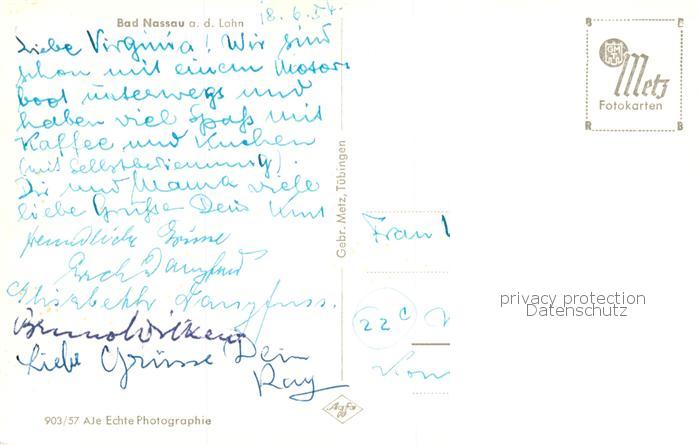 Bad Nassau a. d. Lahn
18. 6. 54.
Liebe Virginia! Wir sind
schon mit einem Motor-
boot unterwegs und
haben viel Spaß mit
Kaffee und Kuchen
(mit Selbstbedienung).
Dir und Mama viele
liebe Grüße Dein
freundliche Grüsse
Elisabeth
Bruno
Liebe Grüsse Dein
Ray
Gebr. Metz, Tübingen
B C
Metz
Fotokarten
R B
Frau
22c
privacy protection
Datenschutz
903/57 AJe Echte Photographie
Agfa